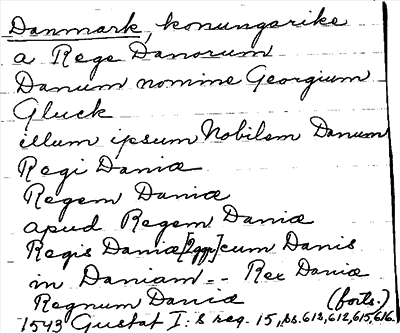 Danmark, konungarike
a Rege Danorum
Danum nomine Georgium
Gluck
illum ipsum Nobilem Danum
Regi Daniæ
Regem Daniæ
apud Regem Daniæ
Regis Daniæ [2 ggr] cum Danis
in Daniam -- Rex Daniæ
Regnum Daniæ (forts.)
1543 Gustaf I:s reg. 15, ss. 613, 612, 615, 616.